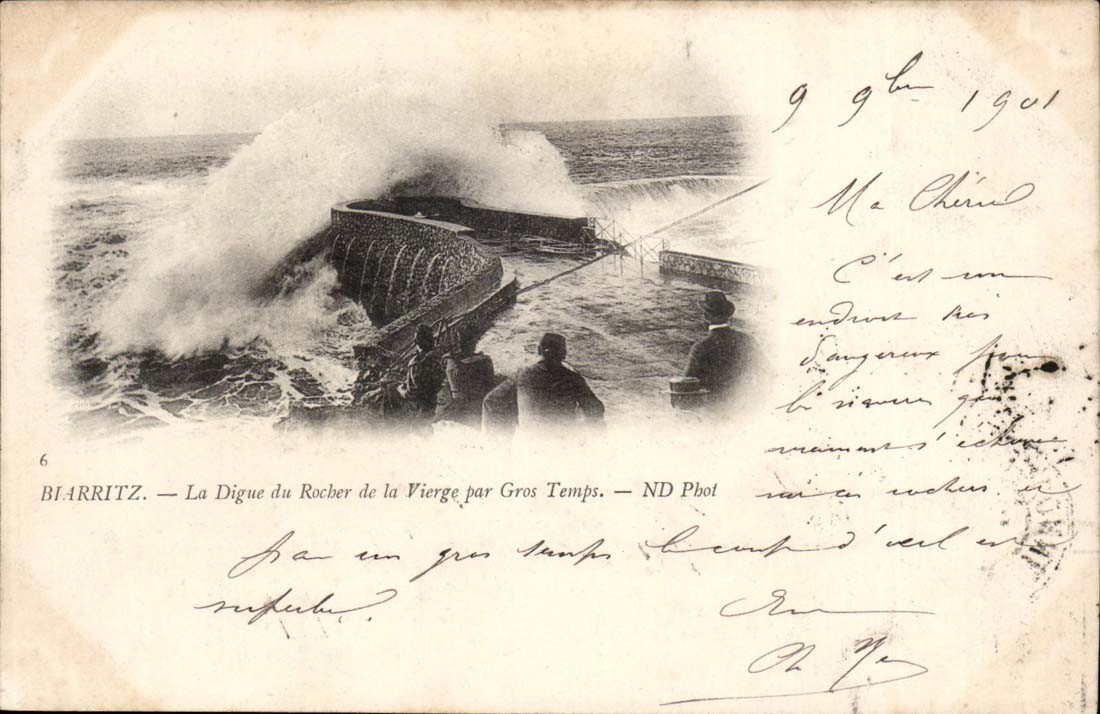 9 9bre 1901
Ma Chérie
C'est un
endroit très
dangereux pour
qui
vraiment s'échouer
sur ces rochers. et
6
BIARRITZ. — La Digue du Rocher de la Vierge par Gros Temps. — ND Phot
par un gros temps le coup d'oeil est
superbe.